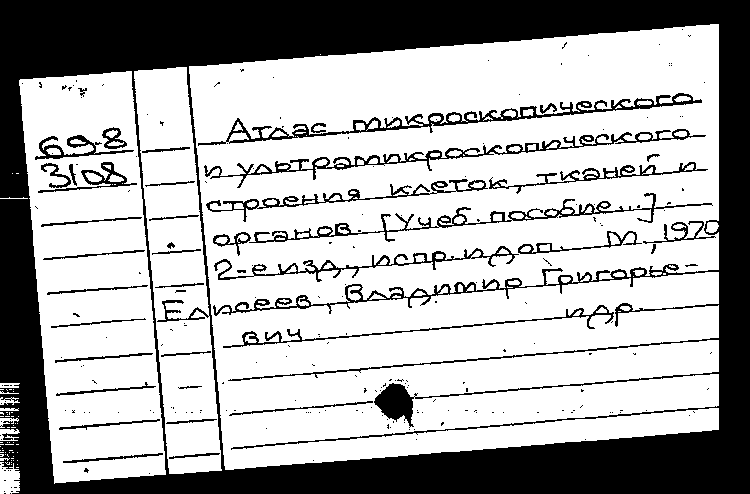 69-8
3108
Атлас микроскопического
и ультрамикроскопического
строения клеток, тканей и
органов. [Учеб. пособие...].
2-е изд., испр. и доп. М., 1970
Елисеев, Владимир Григорье-
вич и др.